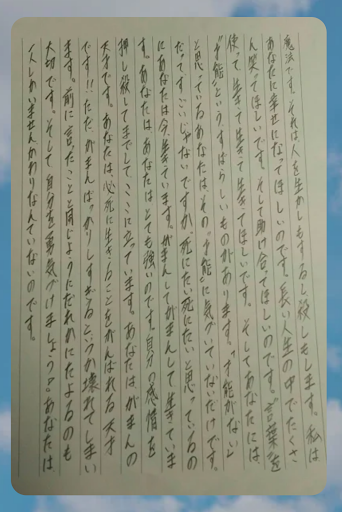 魔法です。それは人を生かしもするし殺しもします。私は
あなたに幸せになってほしいのです。長い人生の中でたくさ
ん笑ってほしいです。そして助け合ってほしいのです。“言葉”を
使って生きて生きて生きてほしいです。そしてあなたには、
“才能”というすばらしいものがあります。「才能がない」
と思っているあなたは、その“才能”に気づいていないだけです。
だってすごいじゃないですか、死にたい死にたいと思っているの
にあなたは今、生きています。がまんしてがまんして生きていま
す。あなたはあなたはとても強いのです。自分の感情を
押し殺してまでして、ここに立っています。あなたはがまんの
天才です。あなたは、必死に生きることをがんばれる天才
です!!ただ、がまんばっかりしすぎるというか壊れてしまい
ます。前に言ったことと同じようにだれかにたよるのも
大切です。そして自分を勇気づけましょう?あなたは
一人しかいませんかわりなんていないのです。